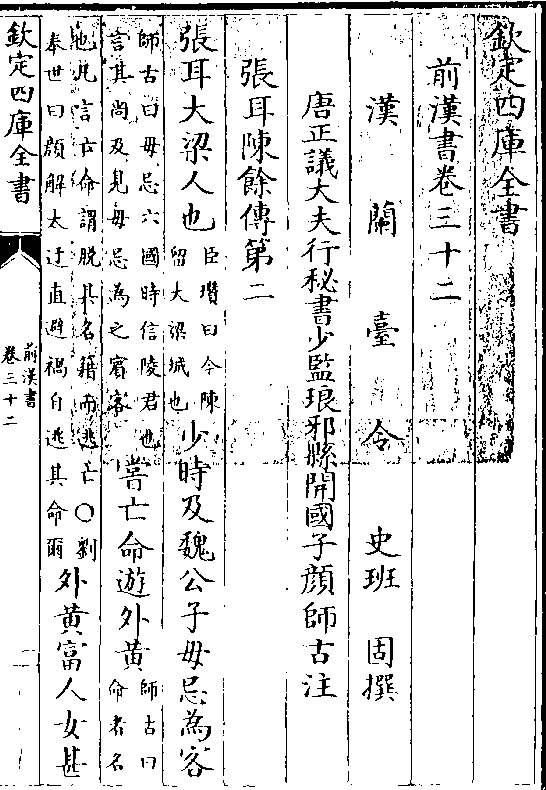 欽定四庫全書
前漢書卷三十二
漢蘭臺令史班固撰
唐正議大夫行秘書少監琅邪縣開國子顔師古注
張耳陳餘傳第二
張耳大梁人也臣瓚曰今陳留大梁城也少時及魏公子毋忌為客
師古曰毋忌六國時信陵君也言其尚及見毋忌為之賓客嘗亡命遊外黄師古曰命者名
也凡言亡命謂脱其名籍而逃亡〇劉奉世曰顔解太迂直避禍自逃其命爾外黄富人女甚
欽定四庫全書
前漢書
卷三十二
一